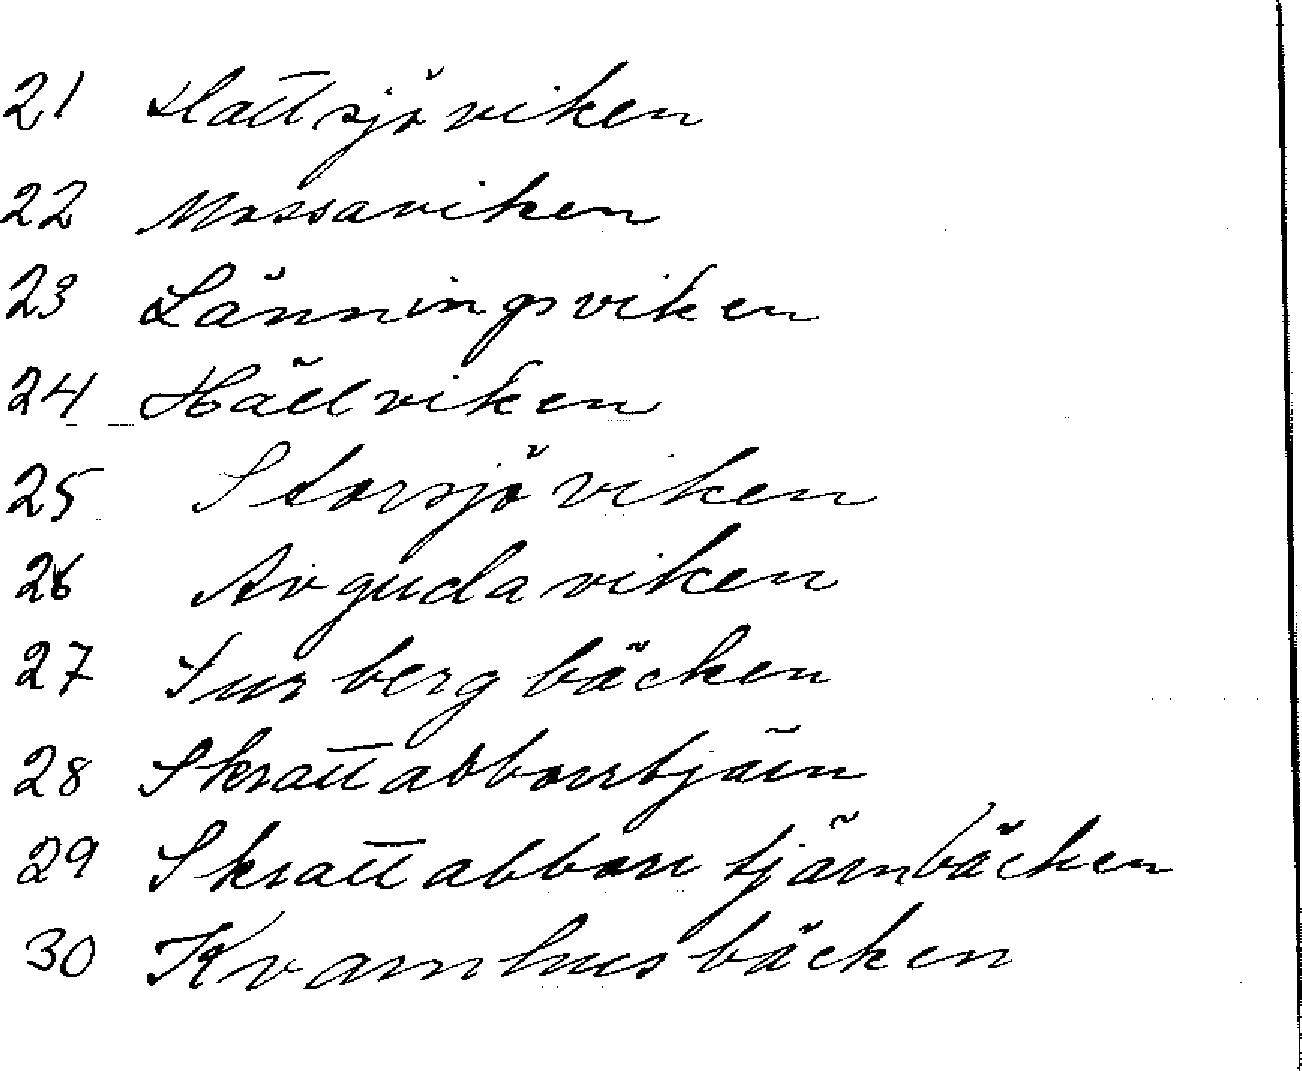 21 Hattsjöviken
22 Mossaviken
23 Länningsviken
24 Hällviken
25 Storsjöviken
26 Avgudaviken
27 Surbergbäcken
28 Skrattabborrtjärn
29 Skrattabborrtjärnbäcken
30 Kvarnhusbäcken